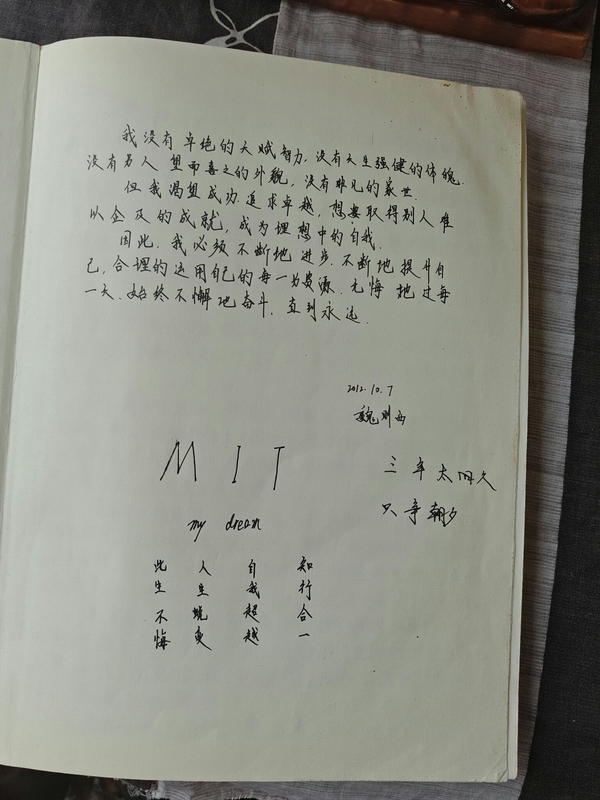 我没有卓绝的天赋智力,没有天生强健的体魄.
没有另人望而喜之的外貌,没有非凡的家世.
但我渴望成功.追求卓越,想要取得别人难
以企及的成就,成为理想中的自我.
因此.我必须不断地进步.不断地提升自
己,合理的运用自己的每一力资源.无悔地过每
一天.始终不懈地奋斗.直到永远.
2012.10.7
魏则西
MIT
三年太闲久
只争朝夕
my dream
知行合一
自我超越
人生蜕变
此生不悔